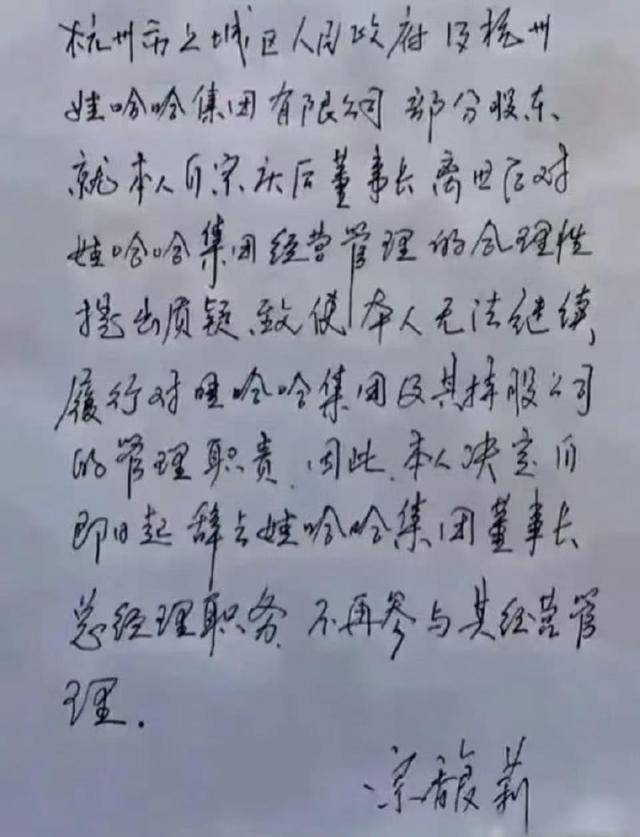 杭州市上城区人民政府及杭州
娃哈哈集团有限公司部分股东、
就本人自宗庆后董事长离世后对
娃哈哈集团经营管理的合理性
提出质疑,致使本人无法继续
履行对哇哈哈集团及其持股公司
的管理职责.因此.本人决定自
即日起辞去娃哈哈集团董事长
总经理职务.不再参与其经营管
理.
宗馥莉